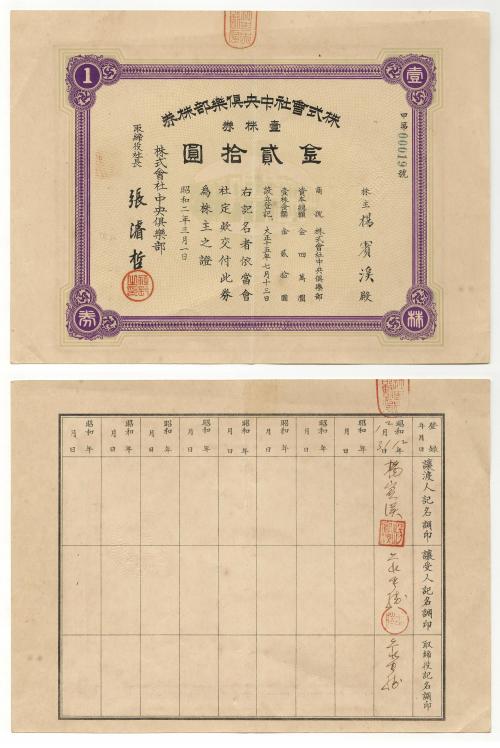 壹
1
株
券
株式會社中央俱樂部株券
壹株券
金貳拾圓
甲第00019號
株主 楊賓溪殿
商號 株式會社中央俱樂部
資本總額 金四萬圓
壹株金額 金貳拾圓
設立登記 大正十五年七月十三日
右記名者依當會
社定款交付此券
為株主之證
昭和二年三月一日
株式會社中央俱樂部
取締役社長 張濬哲
登錄年月日
讓渡人記名調印
讓受人記名調印
取締役記名調印
昭和12年12月31日
楊賓溪
昭和 年 月 日
昭和 年 月 日
昭和 年 月 日
昭和 年 月 日
昭和 年 月 日
昭和 年 月 日
昭和 年 月 日
昭和 年 月 日